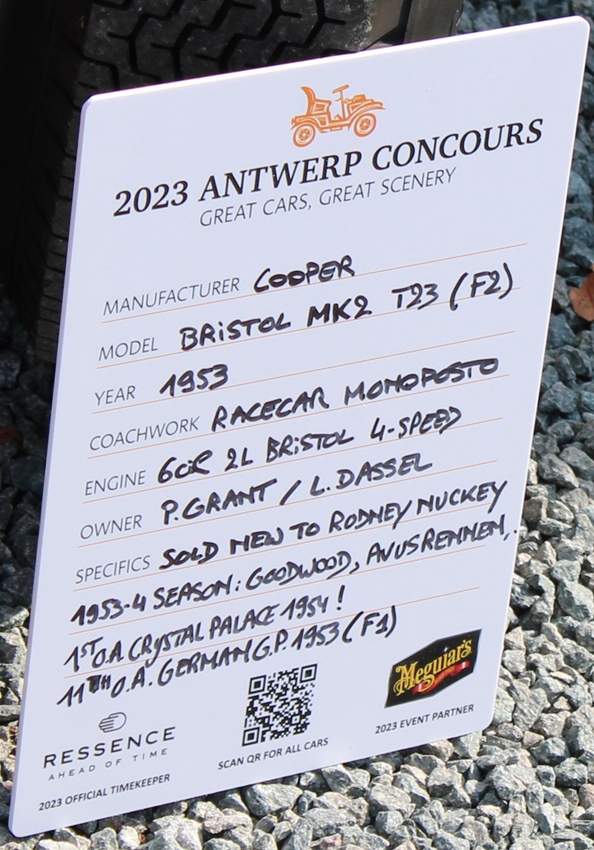 2023 ANTWERP CONCOURS
GREAT CARS, GREAT SCENERY
MANUFACTURER COOPER
MODEL BRISTOL MK2 T23 (F2)
YEAR 1953
COACHWORK RACECAR MONOPOSTO
ENGINE 6CIL 2L BRISTOL 4-SPEED
OWNER P.GRANT / L.DASSEL
SPECIFICS SOLD NEW TO RODNEY NUCKEY
1953-4 SEASON: GOODWOOD, AVUSRENNEN,..
1ST O.A CRYSTAL PALACE 1954!
11TH O.A. GERMAN G.P. 1953 (F1)
RESSENCE
AHEAD OF TIME
2023 OFFICIAL TIMEKEEPER
SCAN QR FOR ALL CARS
Meguiar's
2023 EVENT PARTNER